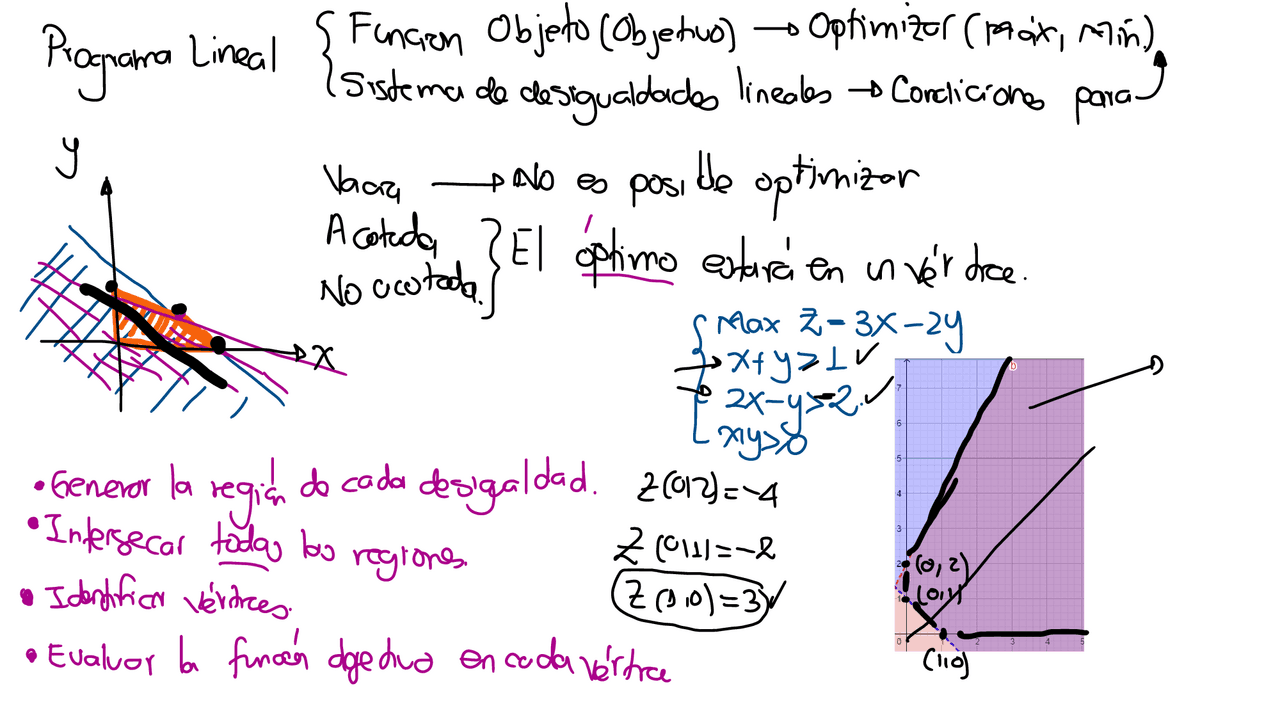 Programa Lineal
Funcion Objeto (Objetivo) → Optimizar (Máx, Mín)
Sistema de desigualdades lineales → Condiciones para
y
x
Vacia → No es posible optimizar
Acotada
No acotada.
El óptimo estará en un vértice.
Max Z = 3x - 2y
x + y ≥ 1 ✓
2x - y ≥ -2. ✓
x, y ≥ 0
• Generar la región de cada desigaldad.
• Intersecar todas las regiones.
• Identificar vértices.
• Evaluar la función objetivo en cada vértice
Z(0,2) = -4
Z(0,1) = -2
Z(1,0) = 3 ✓
7
6
5
4
3
2 (0, 2)
1 (0,1)
0 2 3 4 5
(1,0)